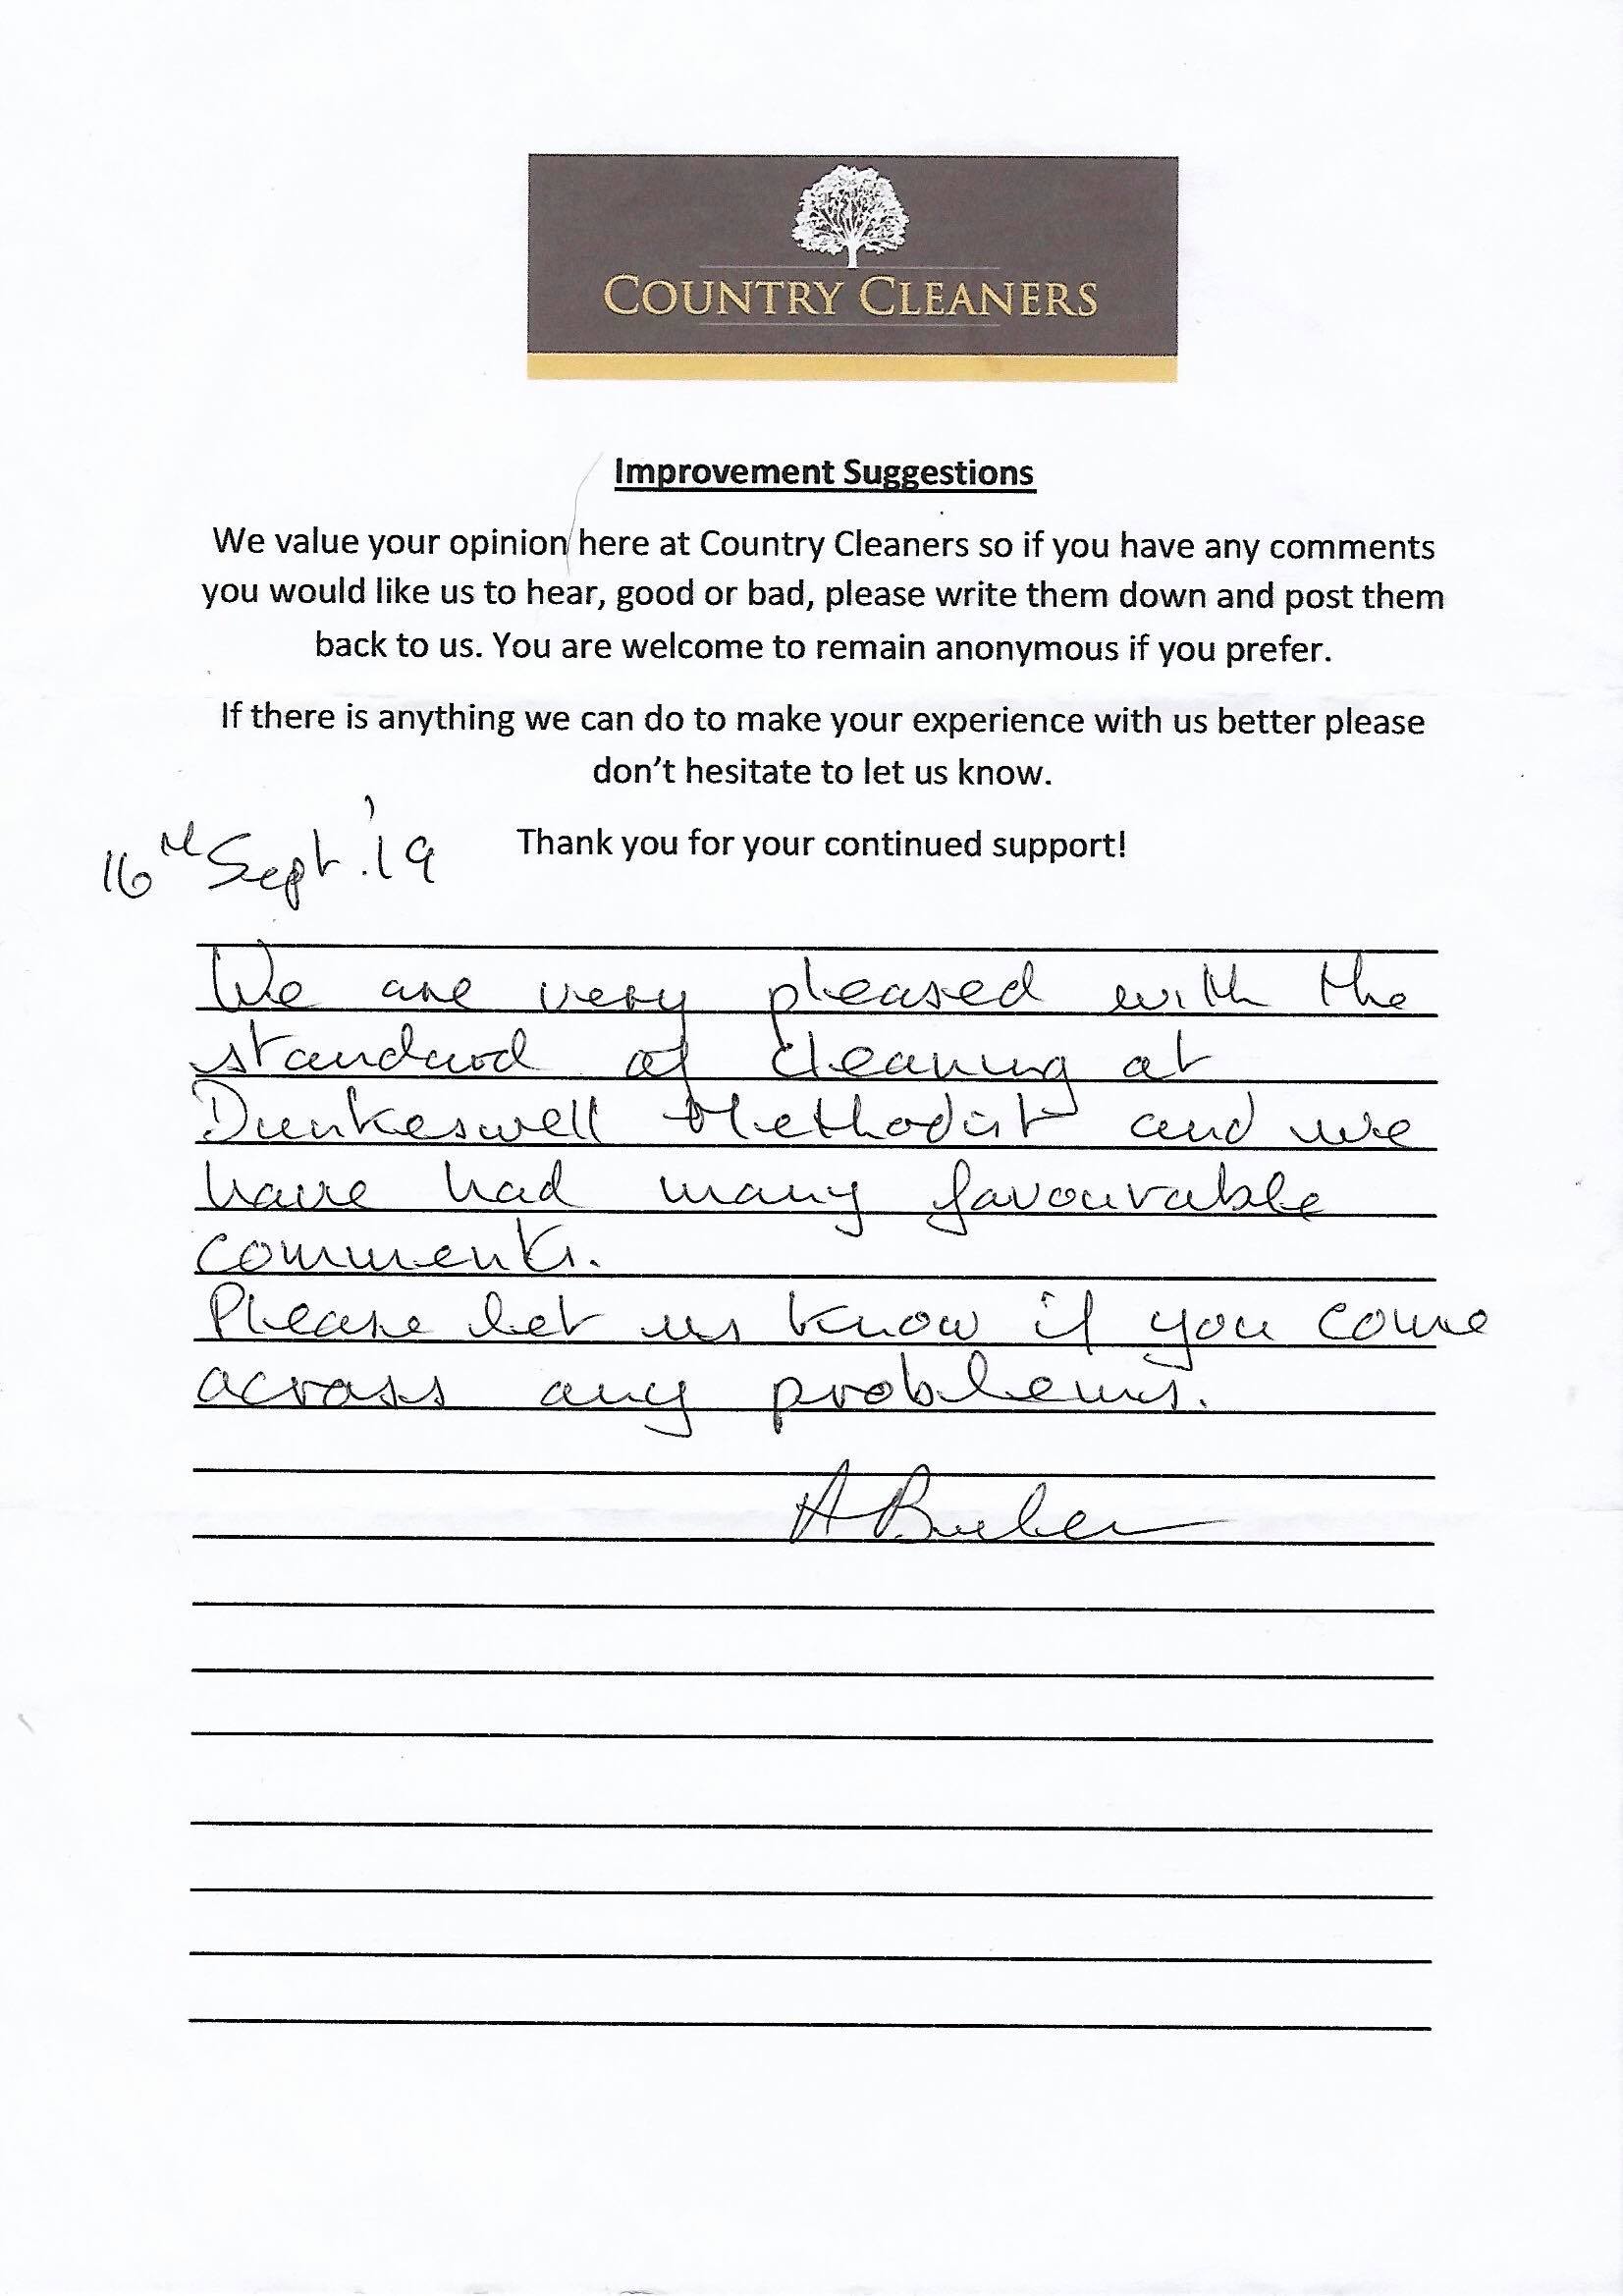 COUNTRY CLEANERS
Improvement Suggestions
We value your opinion here at Country Cleaners so if you have any comments
you would like us to hear, good or bad, please write them down and post them
back to us. You are welcome to remain anonymous if you prefer.
If there is anything we can do to make your experience with us better please
don't hesitate to let us know.
Thank you for your continued support!
16th Sept. '19
We are very pleased with the
standard of cleaning at
Dunkeswell Methodist and we
have had many favourable
comments.
Please let us know if you come
across any problems.
A